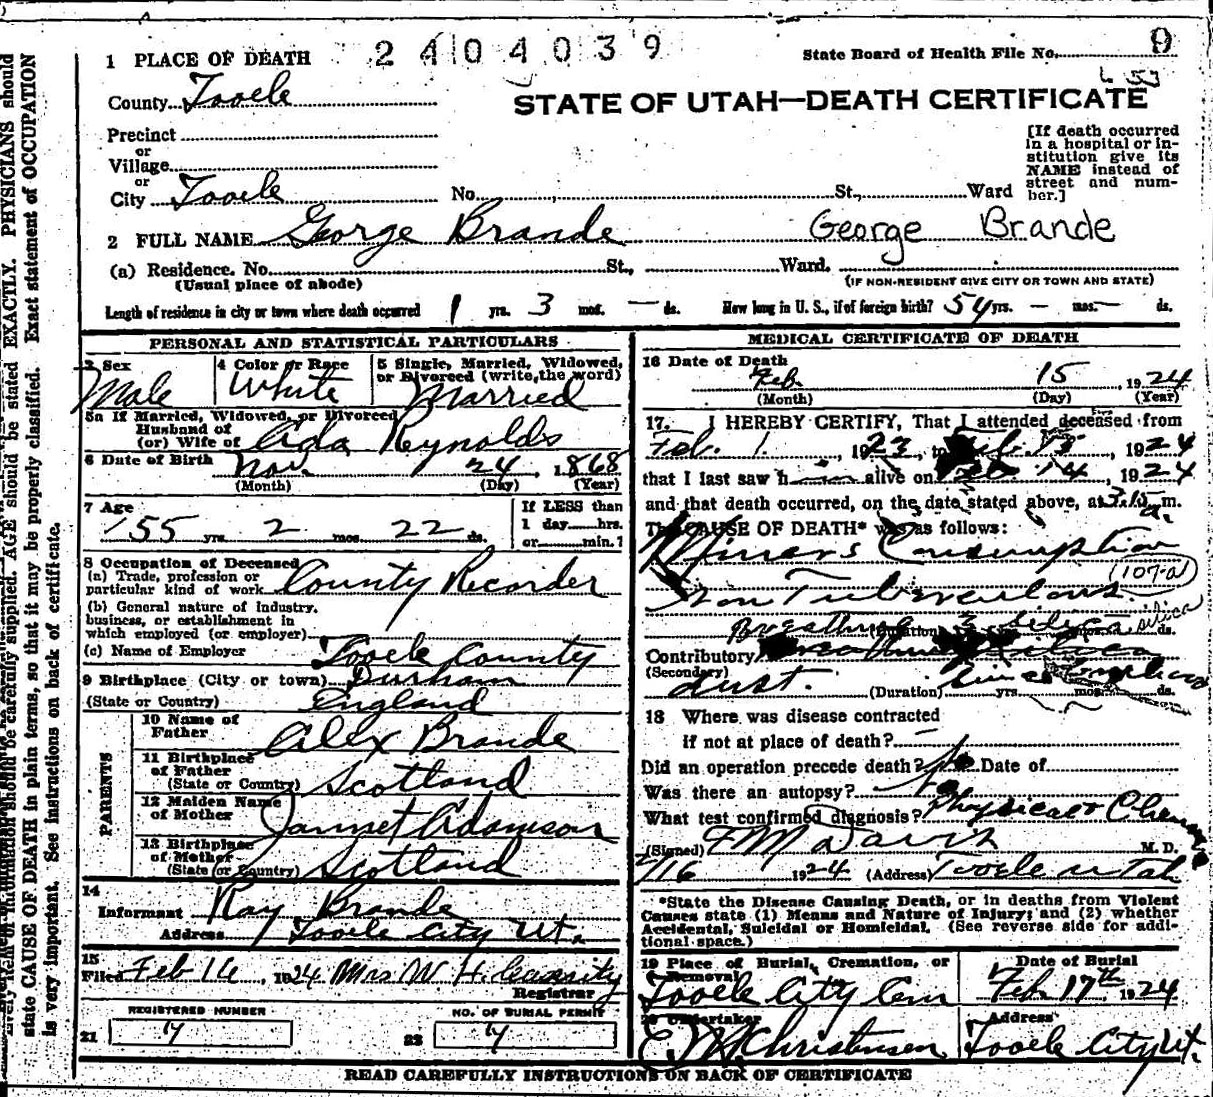 2404039
State Board of Health File No. 9
1 PLACE OF DEATH
County Tooele
STATE OF UTAH—DEATH CERTIFICATE
Precinct
or
Village
or
City Tooele No. St., Ward
[If death occurred
in a hospital or in-
stitution give its
NAME instead of
street and num-
ber.]
2 FULL NAME George Brande George Brande
(a) Residence. No. St., Ward.
(Usual place of abode) (IF NON-RESIDENT GIVE CITY OR TOWN AND STATE)
Length of residence in city or town where death occurred 1 yrs. 3 mos. — ds. How long in U. S., if of foreign birth? 54 yrs. — mos. — ds.
PERSONAL AND STATISTICAL PARTICULARS
3 Sex 4 Color or Race 5 Single, Married, Widowed,
or Divorced (write the word)
Male White Married
5a If Married, Widowed, or Divorced
Husband of
(or) Wife of Aida Reynolds
6 Date of Birth Nov. 24, 1868
(Month) (Day) (Year)
7 Age If LESS than
1 day hrs.
or min.?
55 yrs. 2 mos. 22 ds.
8 Occupation of Deceased
(a) Trade, profession or
particular kind of work County Recorder
(b) General nature of Industry,
business, or establishment in
which employed (or employer)
(c) Name of Employer Tooele County
9 Birthplace (City or town) Durham
(State or Country) England
PARENTS
10 Name of
Father Alex Brande
11 Birthplace
of Father
(State or Country) Scotland
12 Maiden Name
of Mother Jannet Adamson
13 Birthplace
of Mother
(State or Country) Scotland
14
Informant Ray Brande
Address Tooele City Ut.
15
Filed Feb 16, 1924 Mrs W. H. Cassity
Registrar
REGISTERED NUMBER NO. OF BURIAL PERMIT
21 4 22 4
MEDICAL CERTIFICATE OF DEATH
16 Date of Death
Feb. 15, 1924
(Month) (Day) (Year)
17. I HEREBY CERTIFY, That I attended deceased from
Feb. 1, 1923, to Feb. 15, 1924
that I last saw him alive on Feb. 14, 1924
and that death occurred, on the date stated above, at 3.15 a.m.
The CAUSE OF DEATH* was as follows:
Miners Consumption
(107-a)
Non Tuberculous.
Breathing silica silica
(Duration) yrs. mos. ds.
Contributory
(Secondary) dust.
(Duration) yrs. mos. ds.
18 Where was disease contracted
if not at place of death? —
Did an operation precede death? No Date of
Was there an autopsy? No
What test confirmed diagnosis? Physical &
(Signed) F M Davis M. D.
2/16 1924 (Address) Tooele Utah.
*State the Disease Causing Death, or in deaths from Violent
Causes state (1) Means and Nature of Injury; and (2) whether
Accidental, Suicidal or Homicidal. (See reverse side for addi-
tional space.)
19 Place of Burial, Cremation, or
Removal Date of Burial
Tooele City Cem Feb. 17th 1924
20 Undertaker Address
Christensen Tooele City Ut.
READ CAREFULLY INSTRUCTIONS ON BACK OF CERTIFICATE
information should be carefully supplied. AGE should be stated EXACTLY. PHYSICIANS should
state CAUSE OF DEATH in plain terms, so that it may be properly classified. Exact statement of OCCUPATION
is very important. See instructions on back of certificate.